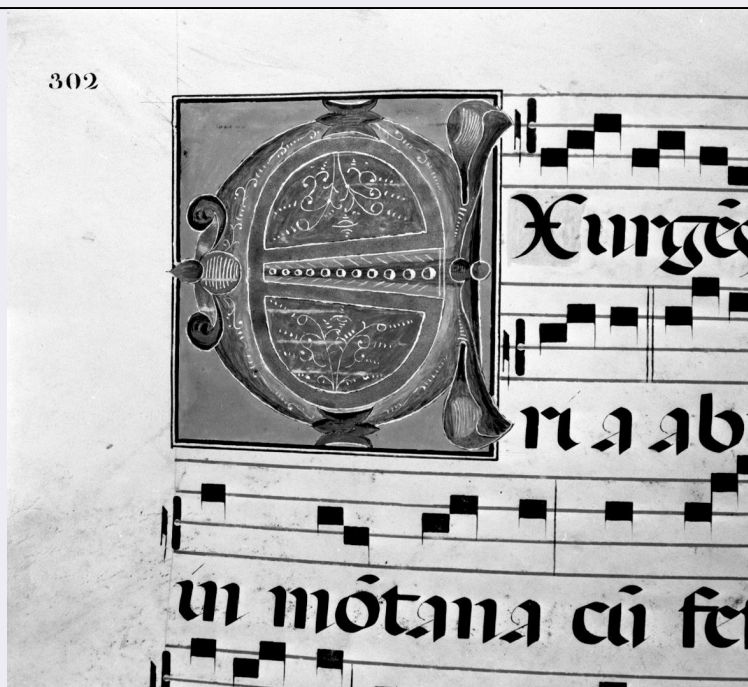 302
EXurgēs
ri a ab
in mōtana cū fes